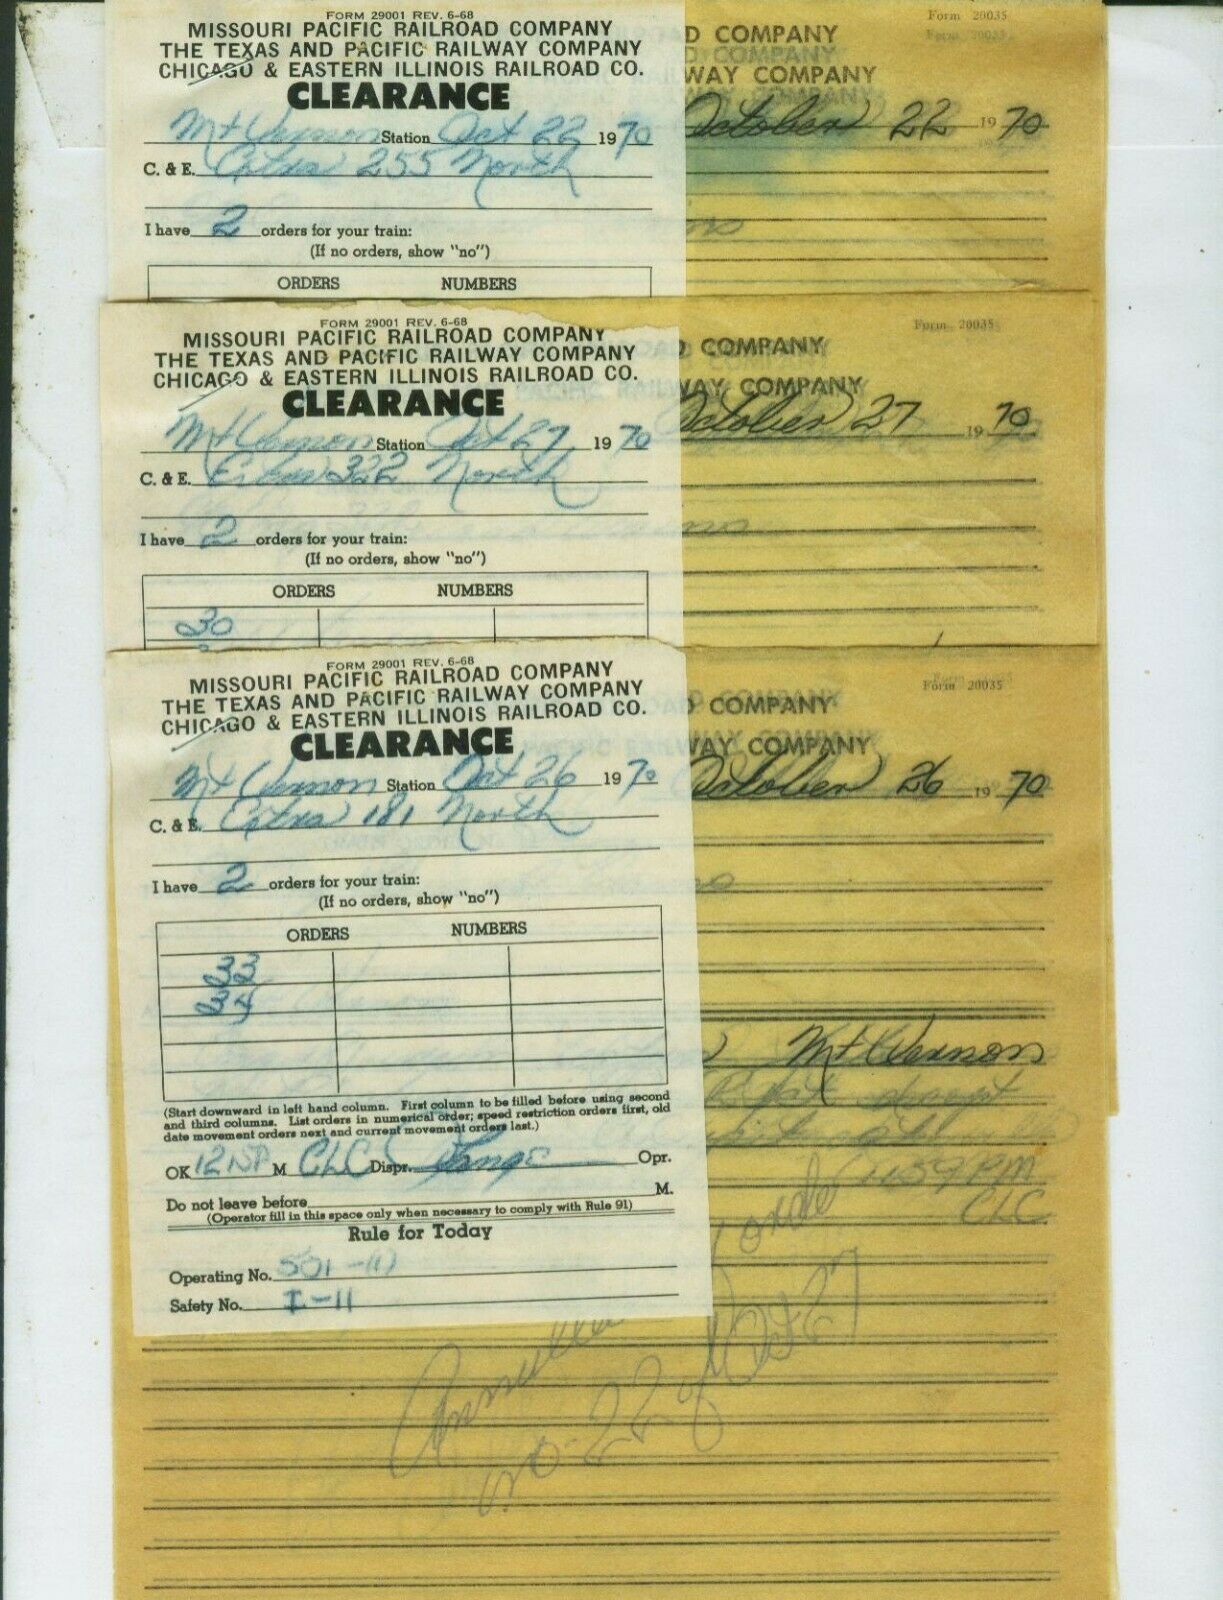 FORM 29001 REV. 6-68
MISSOURI PACIFIC RAILROAD COMPANY
THE TEXAS AND PACIFIC RAILWAY COMPANY
CHICAGO & EASTERN ILLINOIS RAILROAD CO.
CLEARANCE
Mt Vernon Station Oct 22 1970
C. & E. Extra 255 North
I have 2 orders for your train:
(If no orders, show "no")
ORDERS NUMBERS
Form 20035
D COMPANY
WAY COMPANY
October 22 1970
FORM 29001 REV. 6-68
MISSOURI PACIFIC RAILROAD COMPANY
THE TEXAS AND PACIFIC RAILWAY COMPANY
CHICAGO & EASTERN ILLINOIS RAILROAD CO.
CLEARANCE
Mt Vernon Station Oct 27 1970
C. & E. Extra 322 North
I have 2 orders for your train:
(If no orders, show "no")
ORDERS NUMBERS
30
Form 20035
D COMPANY
WAY COMPANY
October 27 1970
FORM 29001 REV. 6-68
MISSOURI PACIFIC RAILROAD COMPANY
THE TEXAS AND PACIFIC RAILWAY COMPANY
CHICAGO & EASTERN ILLINOIS RAILROAD CO.
CLEARANCE
Mt Vernon Station Oct 26 1970
C. & E. Extra 181 North
I have 2 orders for your train:
(If no orders, show "no")
ORDERS NUMBERS
33
34
(Start downward in left hand column. First column to be filled before using second
and third columns. List orders in numerical order; speed restriction orders first, old
date movement orders next and current movement orders last.)
OK M CLC Dispr. Opr.
Do not leave before M.
(Operator fill in this space only when necessary to comply with Rule 91)
Rule for Today
Operating No.
Safety No. I-11
Form 20035
D COMPANY
WAY COMPANY
October 26 1970
Mt Vernon
1159 PM
CLC
no-22 of Oct 27